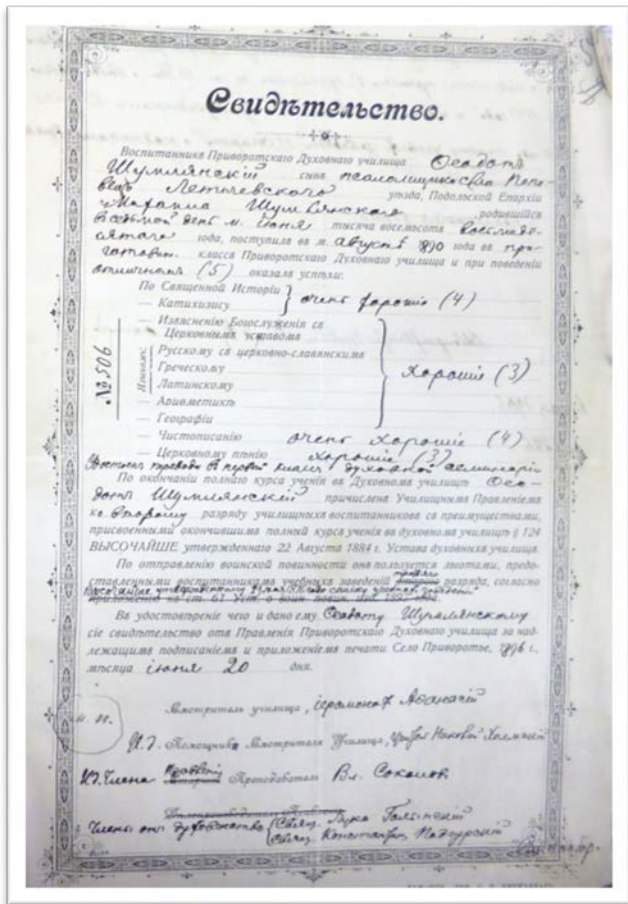 Свидѣтельство.
Воспитанникъ Приворотскаго Духовнаго училища Ѳеодотъ
Шумлянскій сынъ псаломщика села
Летичевскаго уѣзда, Подольской Епархіи
Шумлянскаго, родившійся
въ седьмой день м. Іюня тысяча восемьсотъ
года, поступилъ въ м. августѣ 890 года въ
класса Приворотскаго Духовнаго училища и при поведеніи
отличномъ (5) оказалъ успѣхи:
По Священной Исторіи
— Катихизису } очень хорошіе (4)
— Изъясненію Богослуженія съ
Церковнымъ уставомъ
Языкамъ: Русскому съ церковно-славянскимъ
Греческому
Латинскому
} хорошіе (3)
— Ариѳметикѣ
— Географіи
— Чистописанію очень хорошіе (4)
— Церковному пѣнію хорошіе (3)
№ 506
перевода въ первый классъ духовной семинаріи
По окончаніи полнаго курса ученія въ Духовномъ училищѣ Ѳео-
дотъ Шумлянскій причисленъ Училищнымъ Правленіемъ
ко второму разряду училищныхъ воспитанниковъ съ преимуществами,
присвоенными окончившимъ полный курсъ ученія въ духовномъ училищѣ § 124
ВЫСОЧАЙШЕ утвержденнаго 22 Августа 1884 г. Устава духовныхъ училищъ.
По отправленію воинской повинности онъ пользуется льготами, предо-
ставленными воспитанникамъ учебныхъ заведеній разряда, согласно
приложенію къ ст. 61 Уст. о воин. повин.
Въ удостовѣреніе чего и дано ему Ѳеодоту Шумлянскому
сіе свидѣтельство отъ Правленія Приворотскаго Духовнаго училища за над-
лежащимъ подписаніемъ и приложеніемъ печати. Село Приворотье, 1896 г.,
мѣсяца іюня 20 дня.
М. П.
Смотритель училища, іеромонахъ Аѳанасій
И. д. Помощника Смотрителя Училища,
И. д. Члена Преподаватель Вл. Соколовъ
Члены отъ духовенства Свящ. Лука
Свящ. Константинъ